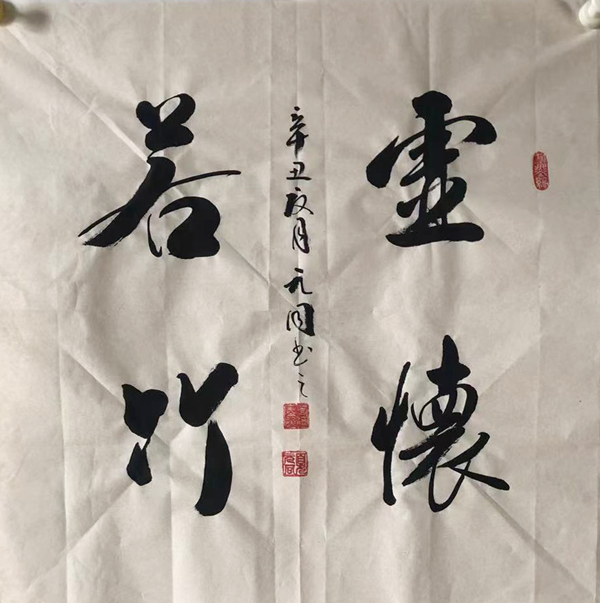 虚懷
若竹
辛丑夏月元同书之